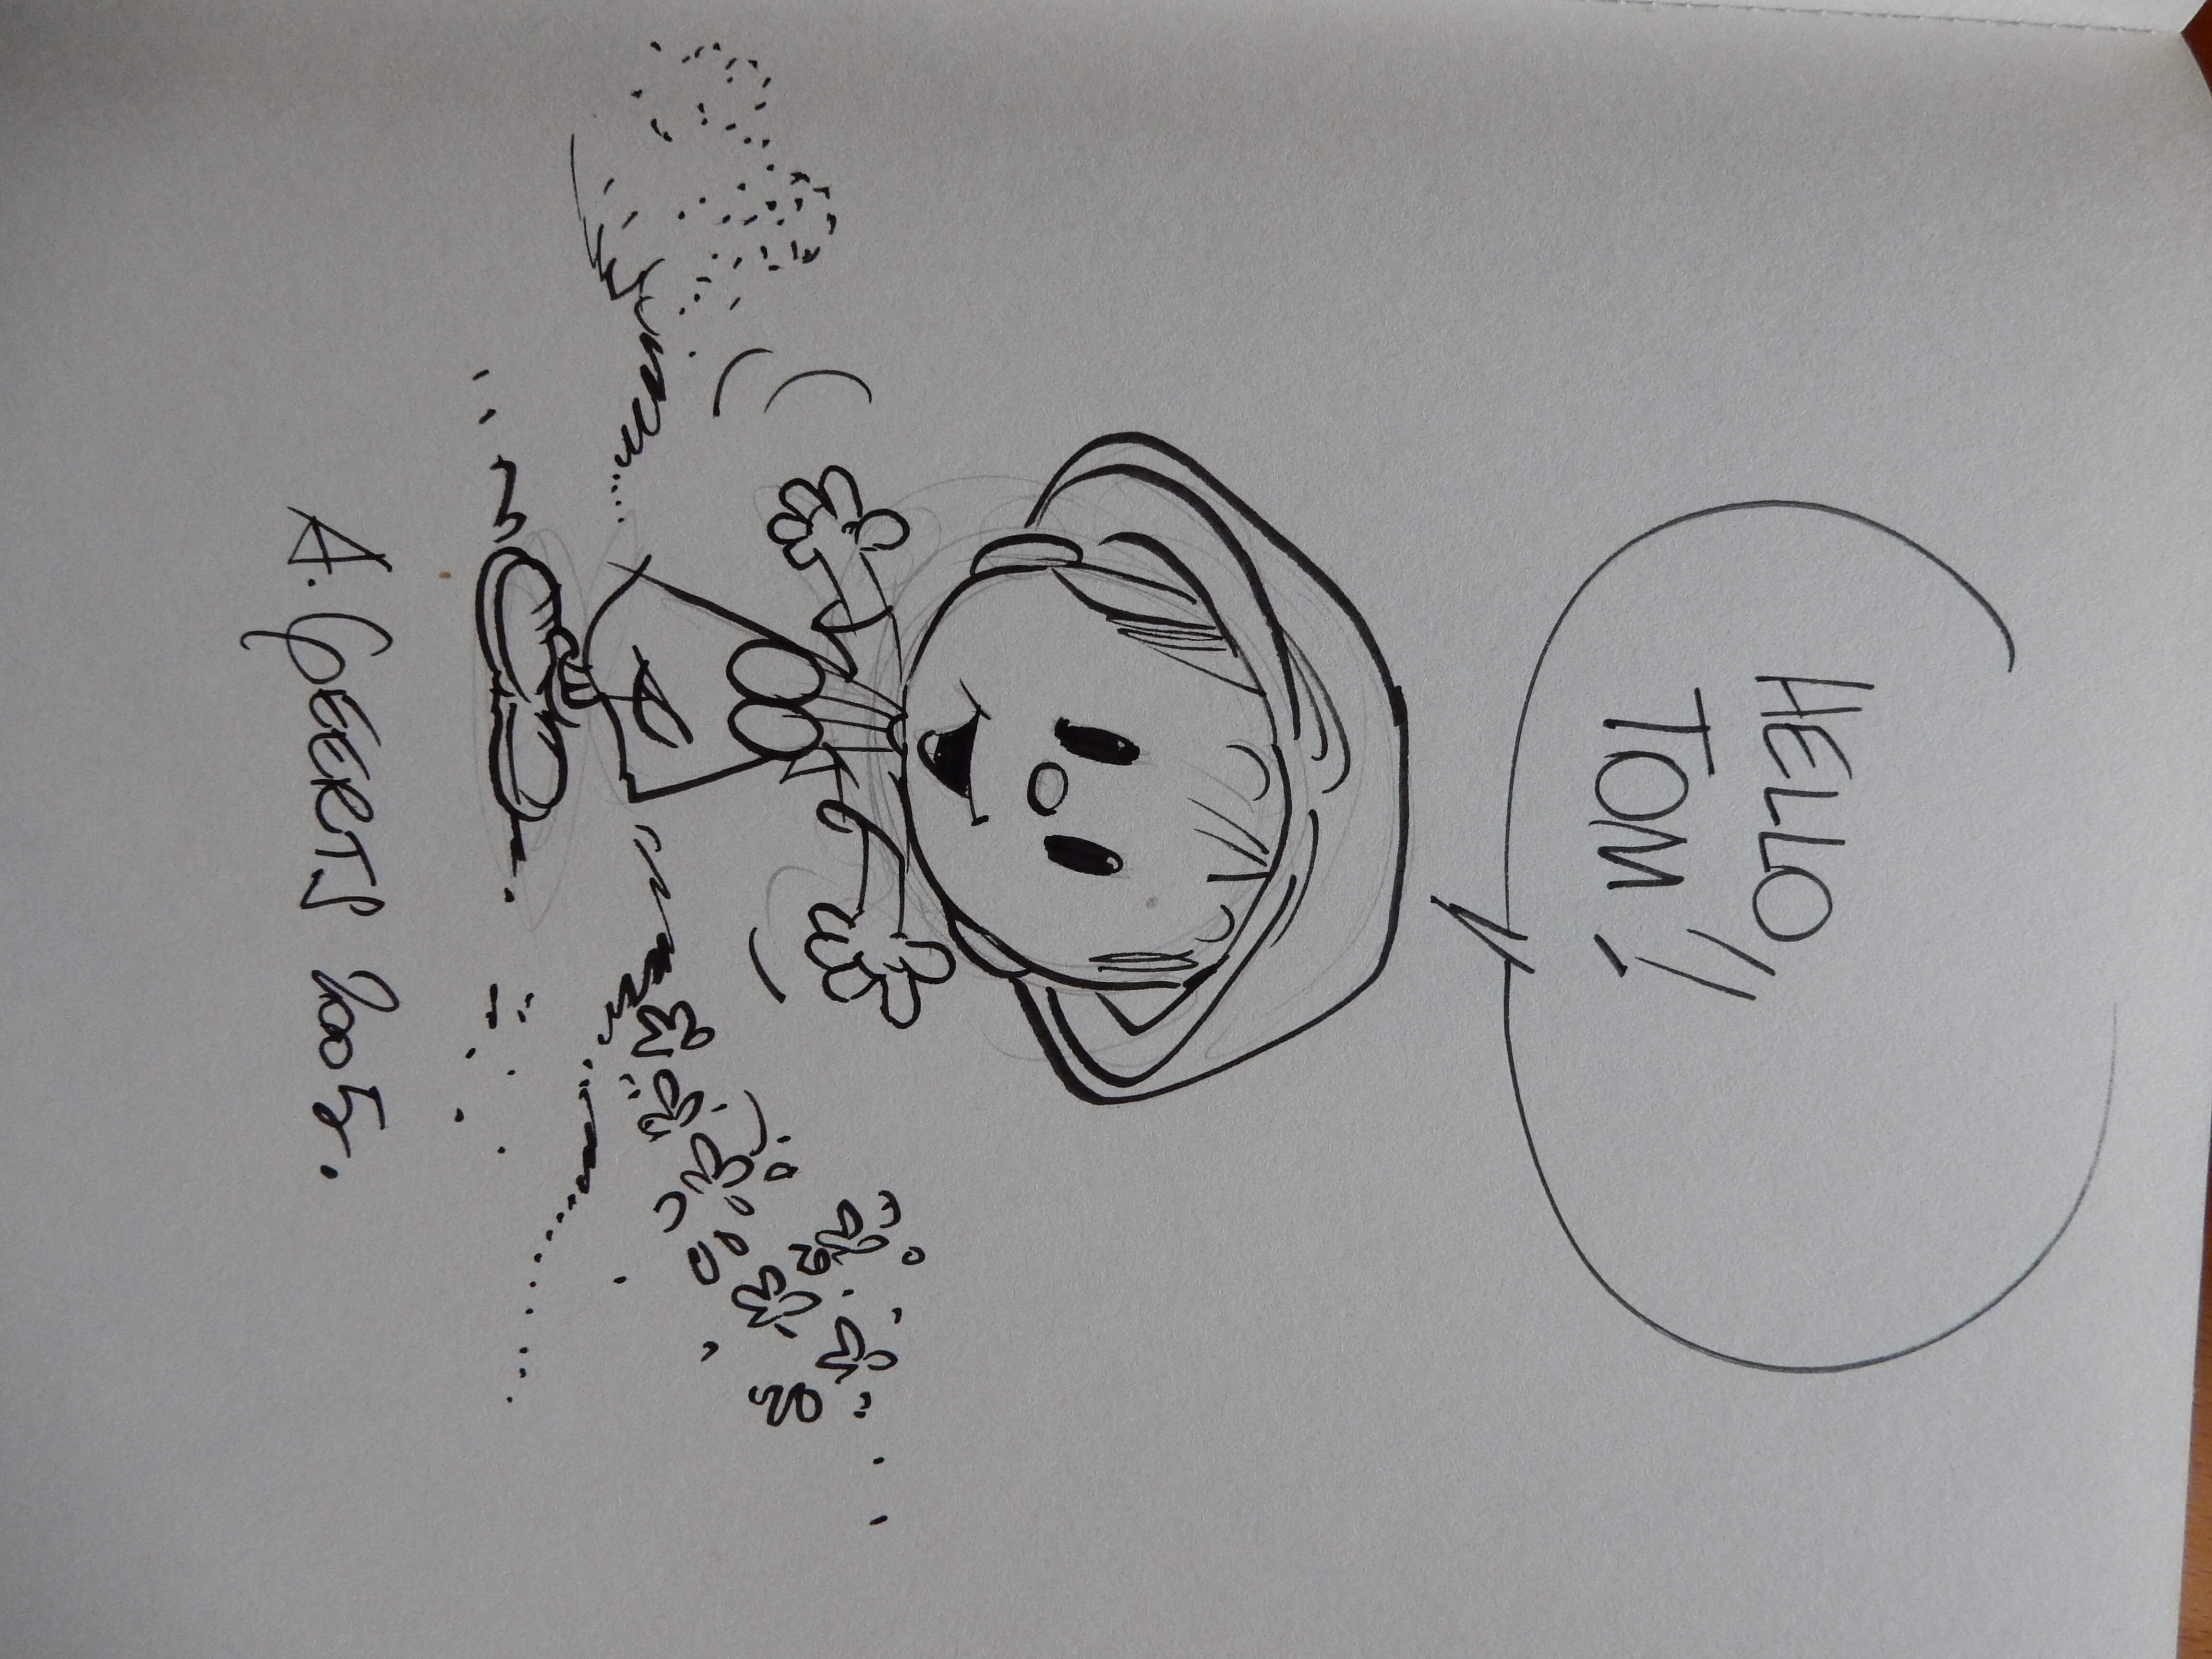 HELLO,
TOM!!
A. GEERTS 2005.